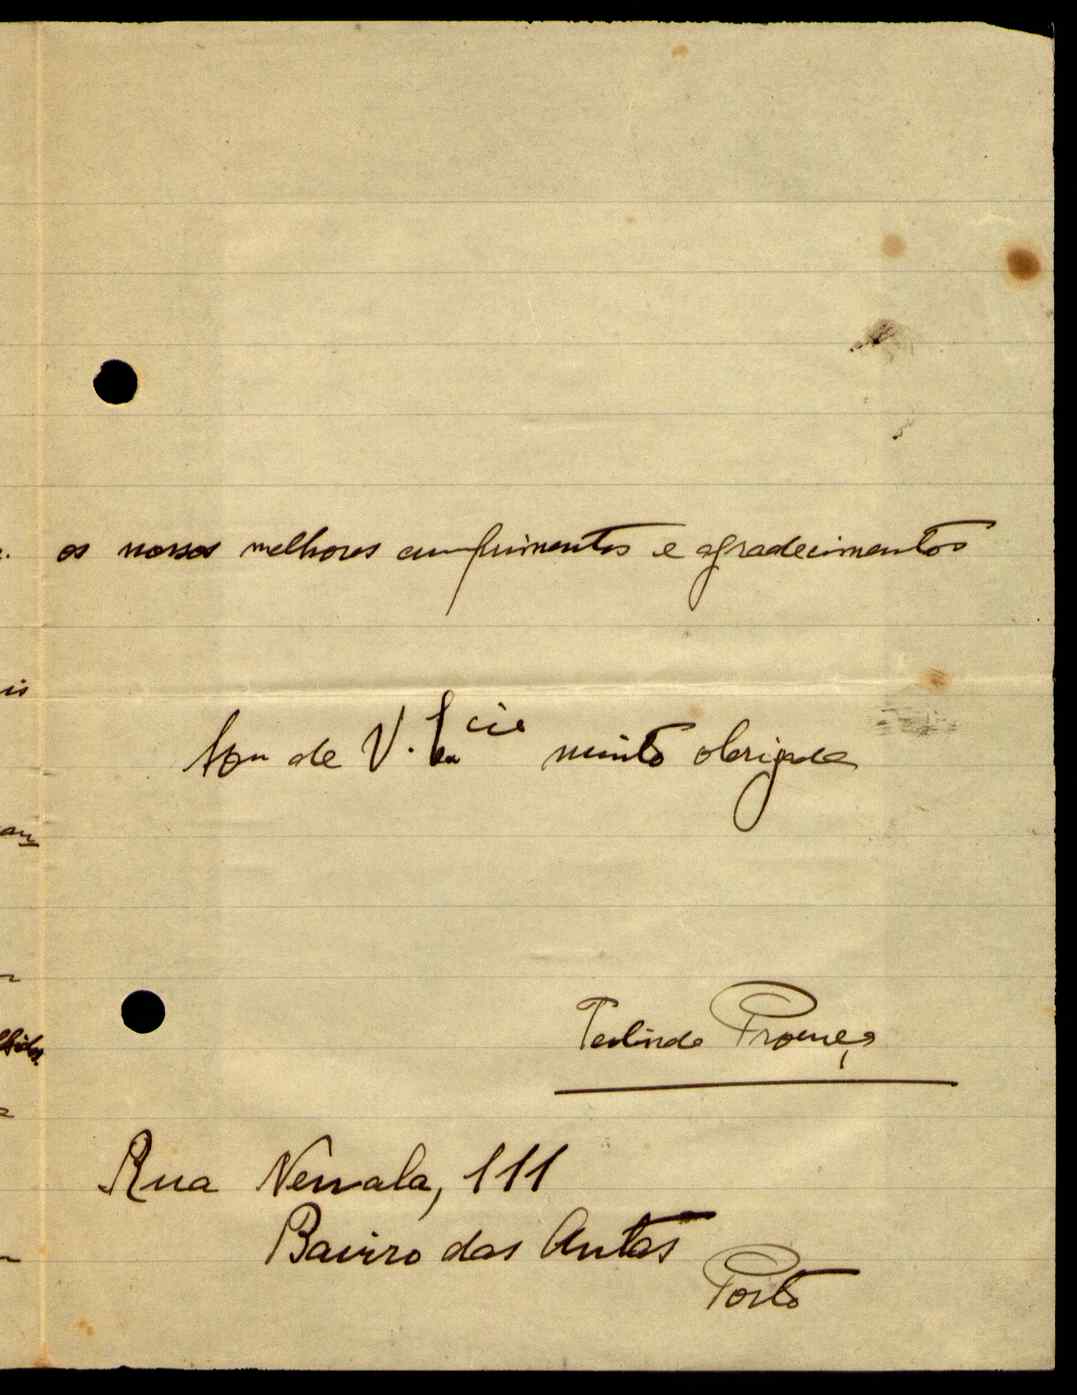 os nossos melhores cumprimentos e agradecimentos
Sou de V. Excia muito obrigada
Teolinda Proença
Rua Nevala, 111
Bairro das Antas
Porto